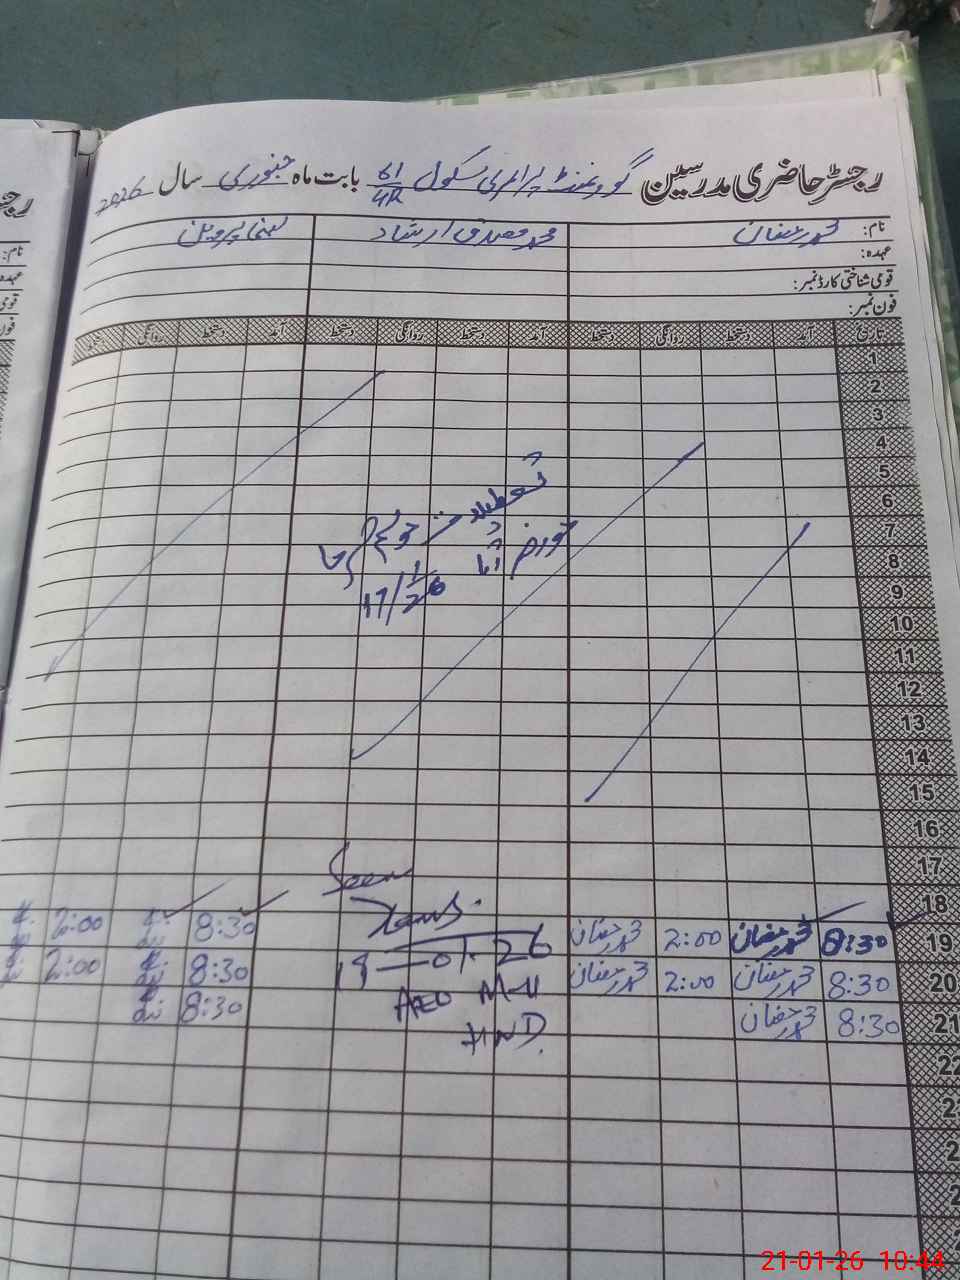 رجسٹر حاضری مدرسین گورنمنٹ پرائمری سکول 61/4R بابت ماہ جنوری سال 2026
نام: محمد رمضان محمد مصدق ارشاد لبنیٰ پروین
عہدہ:
قومی شناختی کارڈ نمبر:
فون نمبر:
تاریخ آمد دستخط روانگی دستخط آمد دستخط روانگی دستخط آمد دستخط روانگی دستخط
1
2
3
4
5
6
7
8
9
10
11
12
13
14
15
16
17
18
تعطیلات
مورخہ
17/1/26
Seen
19 8:30 محمد رمضان 2:00 محمد رمضان 8:30 2:00
20 8:30 محمد رمضان 2:00 محمد رمضان 8:30 2:00
21 8:30 محمد رمضان 8:30
19-01-26
AEO M-II
HND
22
رجسٹر
نام:
عہدہ:
قومی
فون
21-01-26 10:44